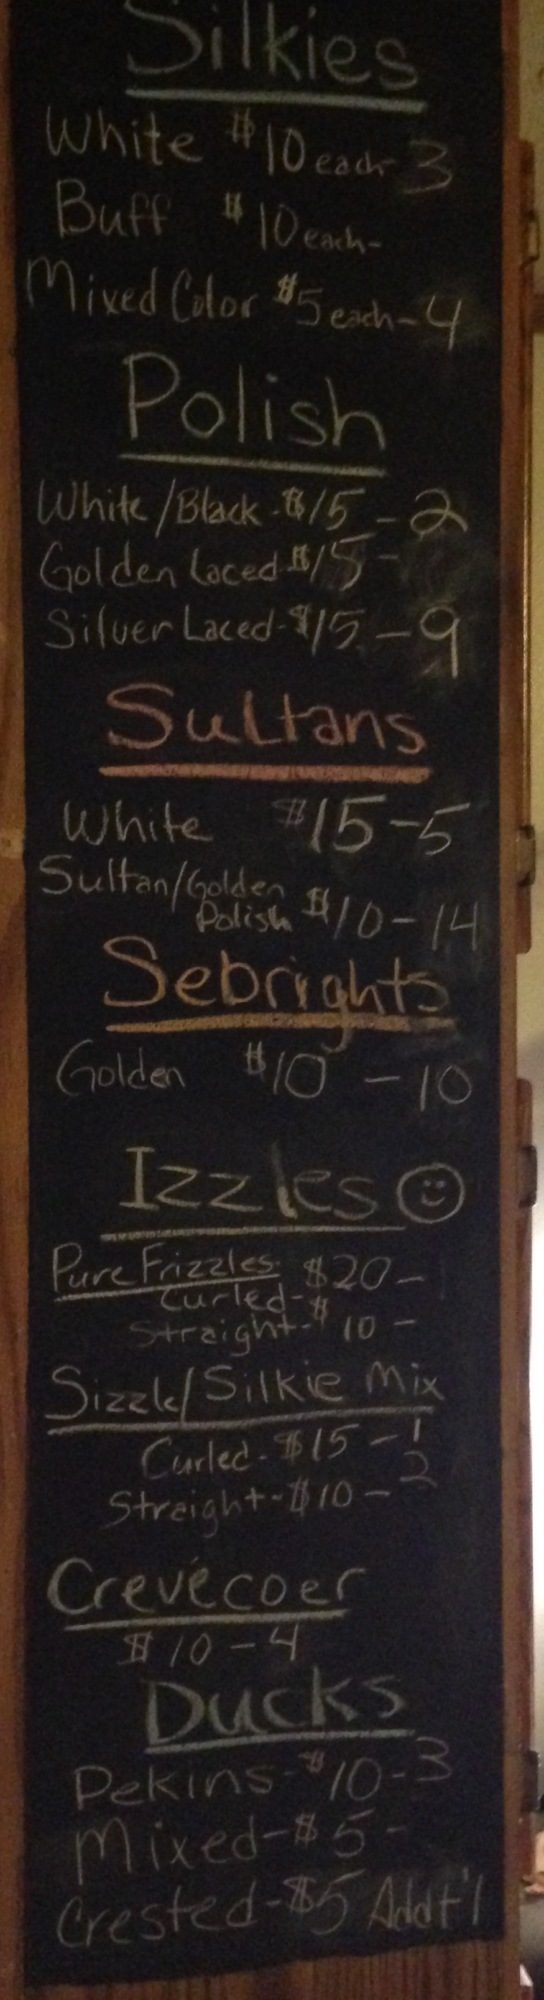 Silkies
White $10 each - 3
Buff $10 each -
Mixed Color $5 each - 4
Polish
White/Black - $15 - 2
Golden Laced $15 -
Silver Laced - $15 - 9
Sultans
White $15 - 5
Sultan/Golden
Polish $10 - 14
Sebrights
Golden $10 - 10
Izzles
Pure Frizzles $20 -
Curled -
Straight - $10 -
Sizzle/Silkie Mix
Curled - $15 - 1
Straight - $10 - 2
Crevécoer
$10 - 4
Ducks
Pekins - $10 - 3
Mixed - $5 -
Crested - $5 Addt'l